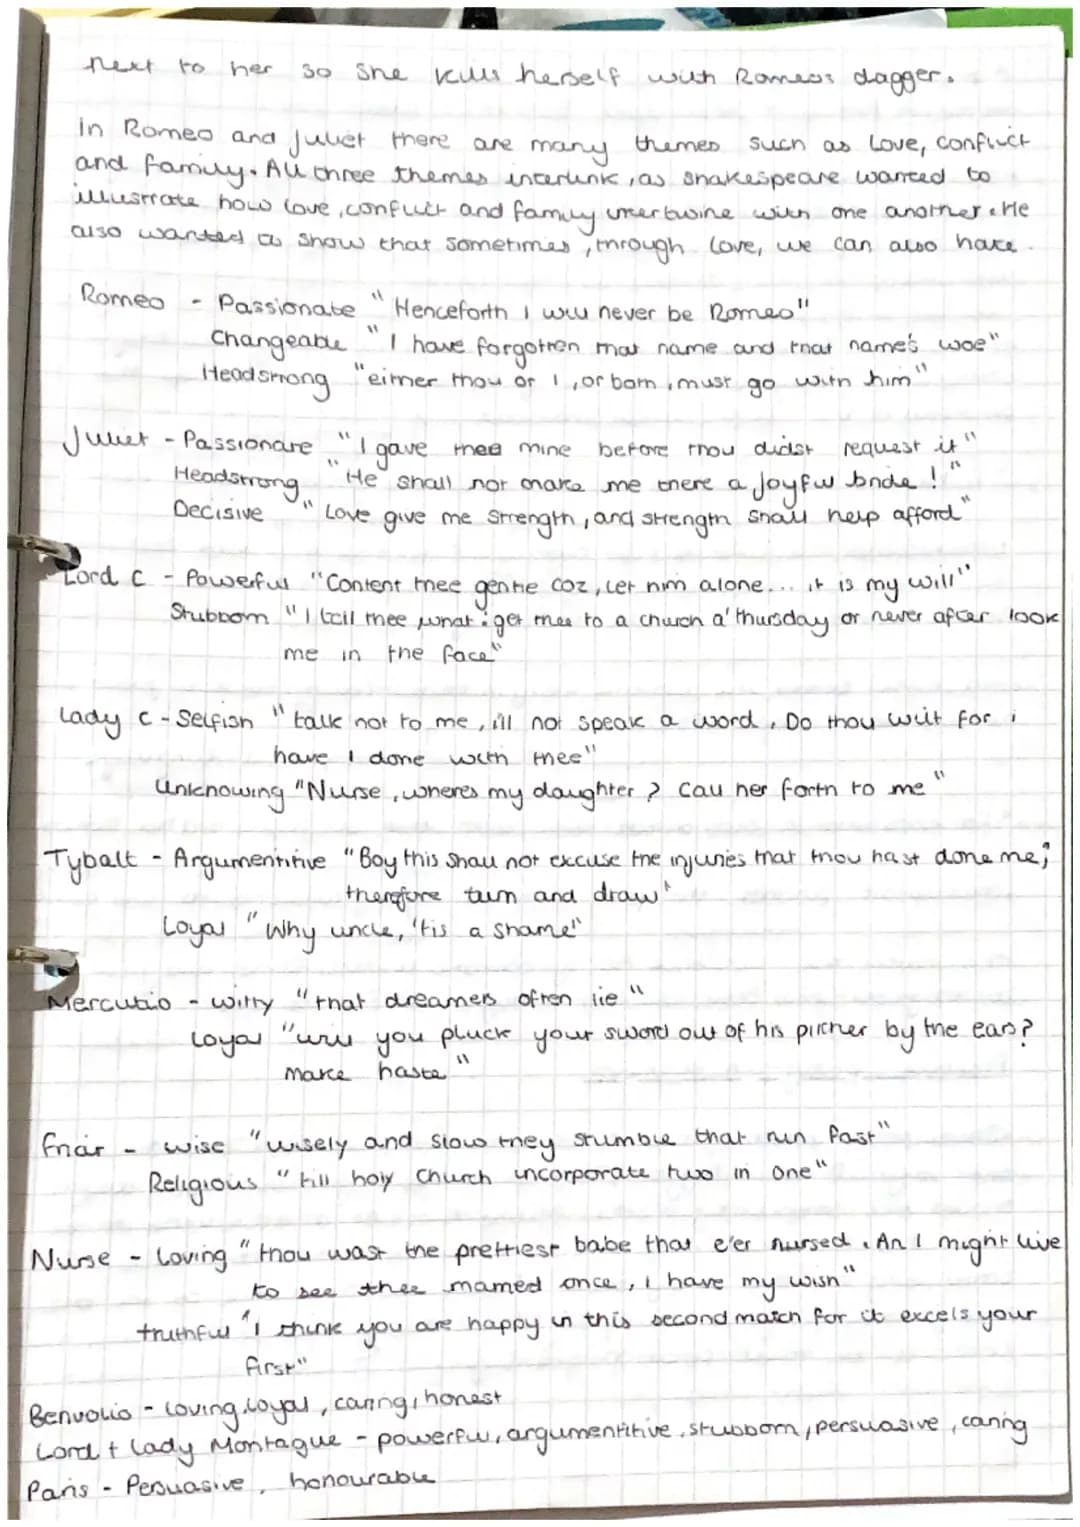 next to her so she kills herself with Romeos dagger.
In Romeo and Juliet there are many themes such as love, conflict
and family. All three themes interlink, as shakespeare wanted to
illustrate how love, conflict and family intertwine with one another. He
also wanted to show that sometimes, through love, we can also hate.
Romeo - Passionate "Henceforth I will never be Romeo"
Changeable "I have forgotten that name and that name's woe"
Headstrong "either thou or I, or both, must go with him"
Juliet - Passionate "I gave thee mine before thou didst request it"
Headstrong "He shall not make me there a joyful bride!"
Decisive "Love give me strength, and strength shall help afford"
Lord C - Powerful "Content thee gentle coz, let him alone... it is my will"
Stubborn "I tell thee what: get thee to a church a' thursday or never after look
me in the face"
Lady C - Selfish "talk not to me, i'll not speak a word. Do thou wilt for i
have I done with thee"
Unknowing "Nurse, wheres my daughter? Call her forth to me"
Tybalt - Argumentitive "Boy this shall not excuse the injuries that thou hast done me;
therefore turn and draw"
Loyal "Why uncle, 'tis a shame"
Mercutio - witty "that dreamers often lie"
Loyal "will you pluck your sword out of his pitcher by the ears?
make haste"
Friar - wise "wisely and slow they stumble that run fast"
Religious "till holy Church incorporate two in one"
Nurse - Loving "thou wast the prettiest babe that e'er nursed. An I might live
to see thee married once, I have my wish"
truthful "I think you are happy in this second match for it excels your
first"
Benvolio - loving, loyal, caring, honest
Lord + Lady Montague - powerful, argumentitive, stubborn, persuasive, caring
Paris - Persuasive, honourable